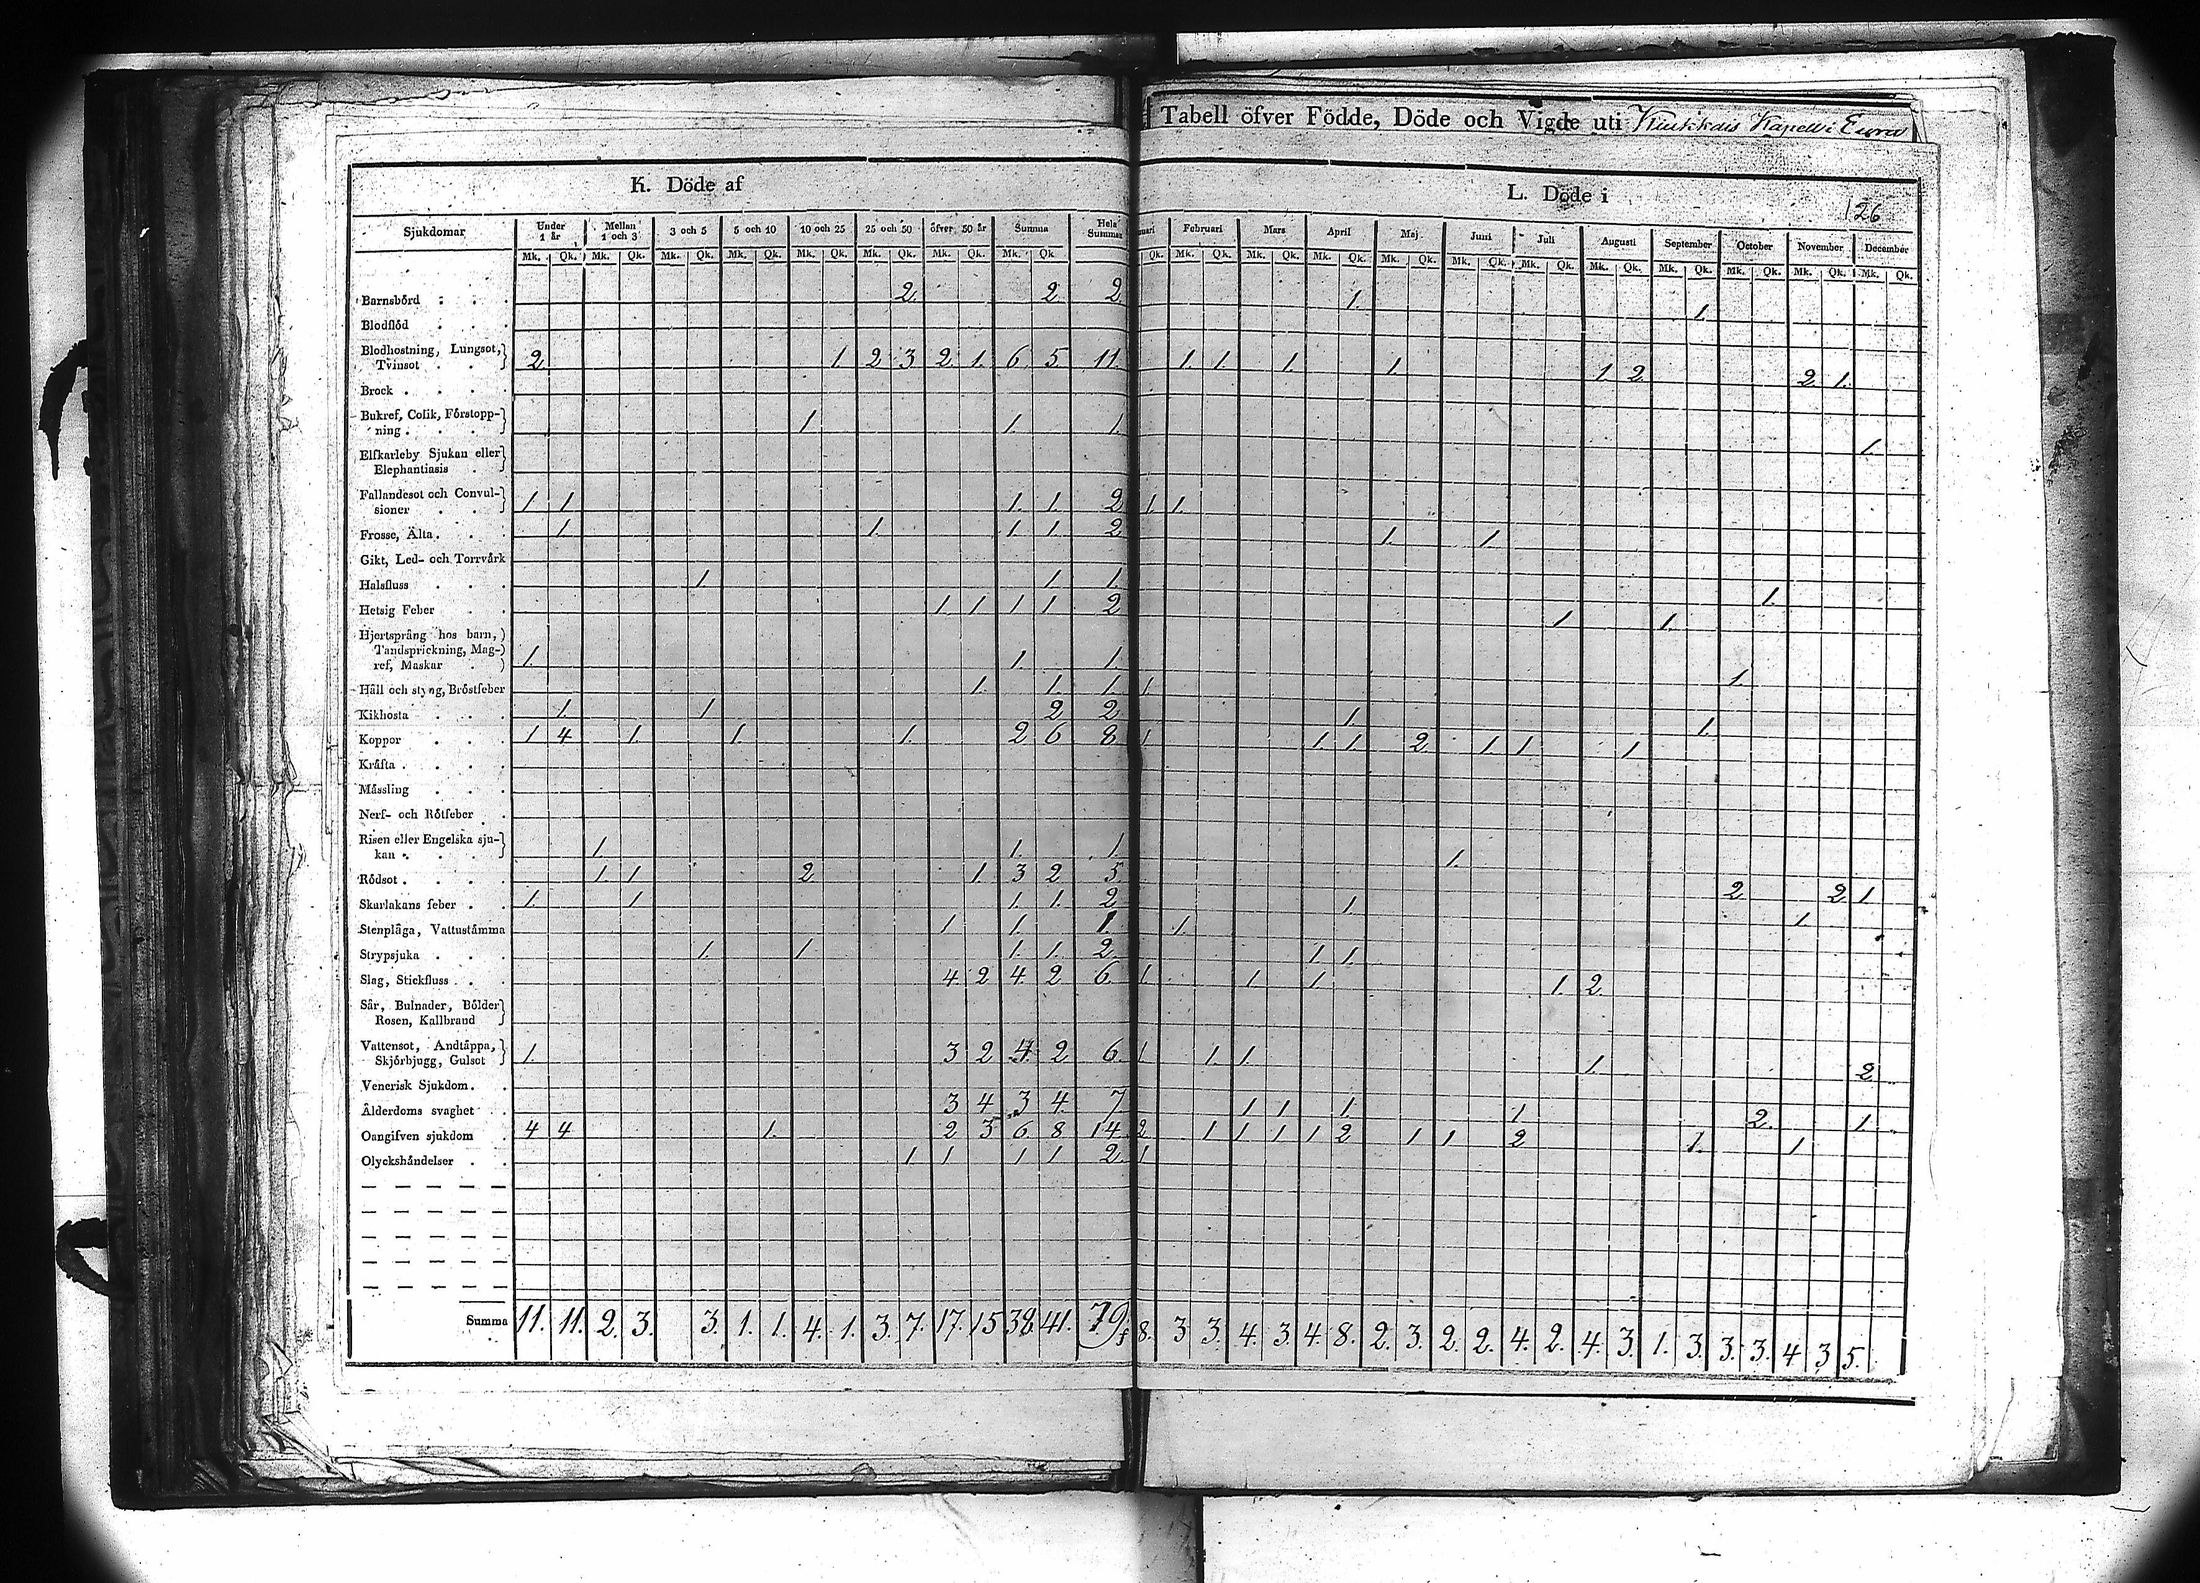 Tabell öfver Födde, Döde och Vigde uti Kiukkais Kapell i Eura
K. Döde af
L. Döde i
126
Sjukdomar Under 1 år Mellan 1 och 3 3 och 5 5 och 10 10 och 25 25 och 50 öfver 50 år Summa Hela Summan uari Februari Mars April Maj Juni Juli Augusti September October November December
Mk. Qk. Mk. Qk. Mk. Qk. Mk. Qk. Mk. Qk. Mk. Qk. Mk. Qk. Mk. Qk. Qk. Mk. Qk. Mk. Qk. Mk. Qk. Mk. Qk. Mk. Qk. Mk. Qk. Mk. Qk. Mk. Qk. Mk. Qk. Mk. Qk. Mk. Qk.
Barnsbörd 2 2 2 1. 1.
Blodflöd
Blodhostning, Lungsot,
Tvinsot 2 1 2 3 2 1. 6 5 11. 1. 1. 1. 1. 1. 2 2 1.
Brock
Bukref, Colik, Förstopp-
ning 1 1. 1. 1.
Elfkarleby Sjukan eller
Elephantiasis
Fallandesot och Convul-
sioner 1. 1 1. 1. 2 1 1.
Frosse, Älta 1. 1. 1 1. 2 1. 1.
Gikt, Led- och Torrvärk
Halsfluss 1 1 1. 1.
Hetsig Feber 1 1 1 1 2 1 1.
Hjertsprång hos barn,
Tandsprickning, Mag-
ref, Maskar 1. 1. 1 1.
Håll och styng, Bröstfeber 1. 1. 1. 1
Kikhosta 1. 1 2 2 1 1.
Koppor 1 4 1 1 1. 2 6 8 1 1 1 2 1 1 1
Kräfta
Mässling
Nerf- och Rötfeber
Risen eller Engelska sju-
kan 1. 1. 1. 1.
Rödsot 1. 1 2 1. 3 2 5 2 2 1
Skarlakans feber 1. 1 1. 1. 2 1.
Stenplåga, Vattustämma 1 1. 1. 1. 1.
Strypsjuka 1. 1 1. 1. 2 1. 1.
Slag, Stickfluss 4 2 4 2 6. 1. 1 1. 1. 2.
Sår, Bulnader, Bölder
Rosen, Kallbrand
Vattensot, Andtäppa,
Skjörbjugg, Gulsot 1. 3 2 4 2 6. 1 1 1. 1. 2
Venerisk Sjukdom
Ålderdoms svaghet 3 4 3 4 7 1 1 1 1 2. 1.
Oangifven sjukdom 4 4 1. 2 3 6. 8 14. 2. 1 1 1 1 2 1 1 2 1. 1
Olyckshändelser 1 1 1 1 2. 1
Summa 11. 11. 2. 3. 3. 1. 1. 4. 1. 3. 7. 17. 15 38. 41. 79 8. 3 3. 4. 3 4. 8. 2. 3. 2. 2. 4. 2. 4. 3. 1. 3. 3. 3. 4 3 5.